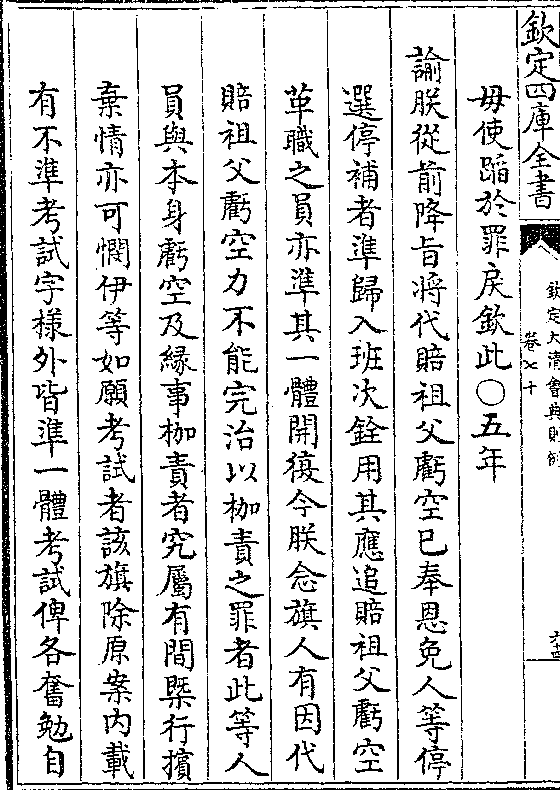 欽定四庫全書
欽定大清會典則例
卷七十
六十四
毋使蹈於罪戾欽此○五年
諭朕從前降旨將代賠祖父虧空已奉恩免人等停
選停補者準歸入班次銓用其應追賠祖父虧空
革職之員亦準其一體開復今朕念旗人有因代
賠祖父虧空力不能完治以枷責之罪者此等人
員與本身虧空及緣事枷責者究屬有間槩行擯
棄情亦可憫伊等如願考試者該旗除原案内載
有不準考試字樣外皆準一體考試俾各奮勉自